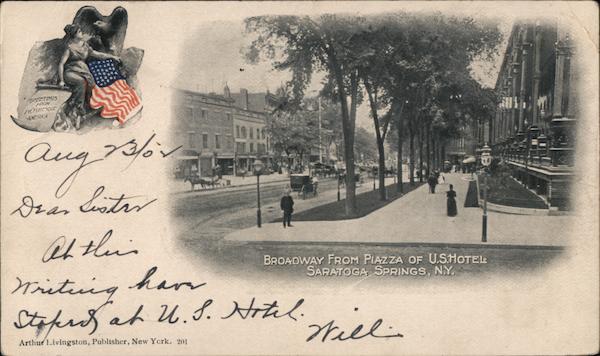 GREETINGS
FROM
PICTURESQUE
AMERICA
Aug 23/02
BROADWAY FROM PIAZZA OF U.S. HOTEL
SARATOGA SPRINGS, N.Y.
Dear Sister
At this
Writing have
Stoped at U.S. Hotel.
Will.
Arthur Livingston, Publisher, New York. 201